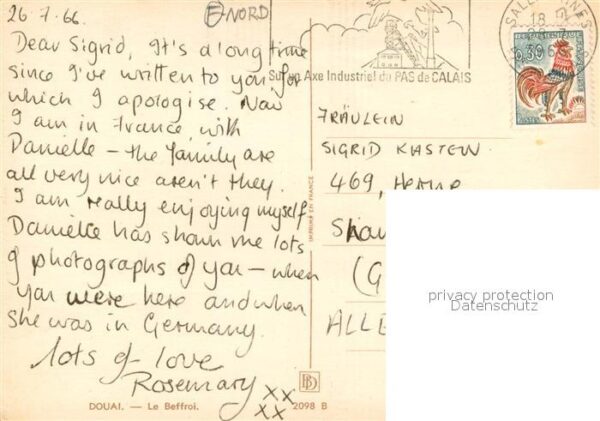 26.7.66.
F-NORD
Dear Sigrid, It's a long time
since I've written to you for
which I apologise. Now
I am in France with
Danielle - the family are
all very nice aren't they.
I am really enjoying myself
Danielle has shown me lots
of photographs of you - when
you were here and when
she was in Germany.
lots of love
Rosemary xx
xx
DOUAI. — Le Beffroi.
2098 B
IMPRIMÉ EN FRANCE
Axe Industriel du PAS de CALAIS
18
0,30
FRÄULEIN
SIGRID KASTEN
469, Herne
(G
ALLE
privacy protection
Datenschutz